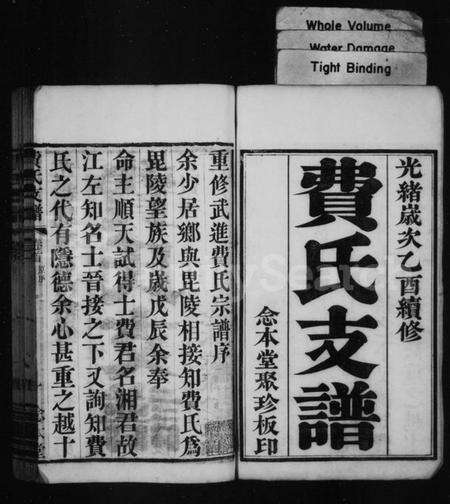 Whole Volume
Water Damage
Tight Binding
光緒歲次乙酉續修
費氏支譜
念本堂聚珍板印
重修武進費氏宗譜序
余少居鄉與毘陵相接知費氏爲
毘陵望族及歲戊辰余奉
命主順天試得士費君名湘君故
江左知名士晉接之下叉詢知費
氏之代有隱德余心甚重之越十
費氏支譜